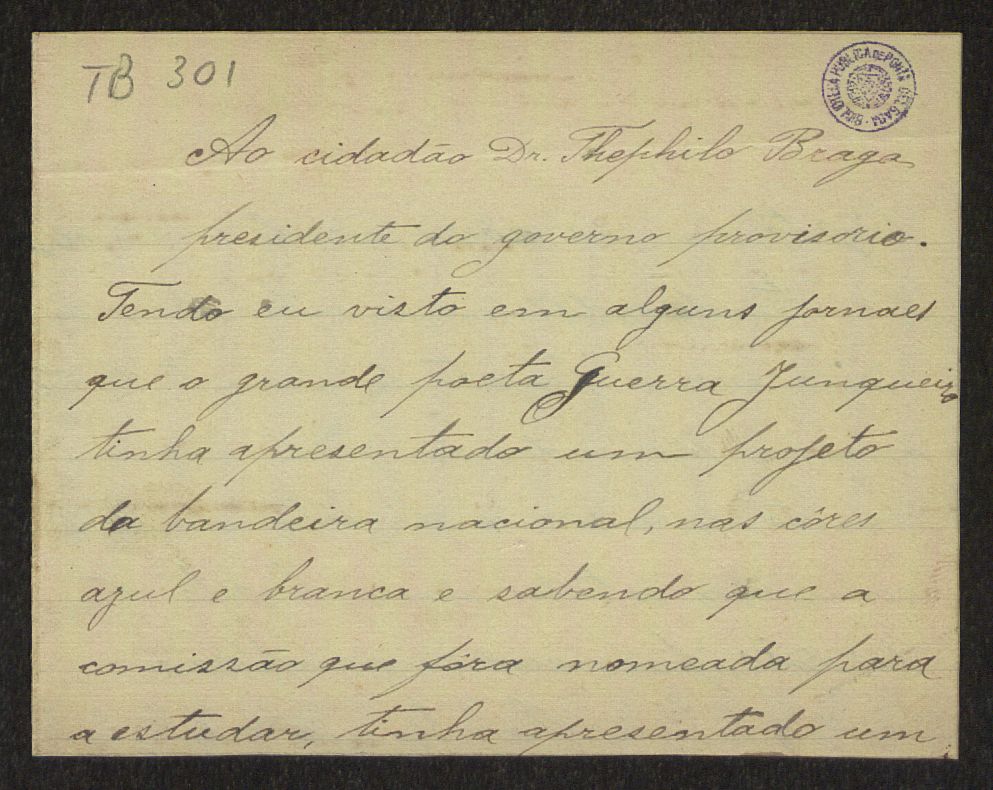 TB 301
BIBLIOTHECA PUBLICA DE PONTA DELGADA
Ao cidadão Dr. Thephilo Braga
presidente do governo provisorio.
Tendo eu visto em alguns jornaes
que o grande poeta Guerra Junqueiro
tinha apresentado um projeto
da bandeira nacional, nas côres
azul e branca e sabendo que a
comissão que fôra nomeada para
a estudar, tinha apresentado um